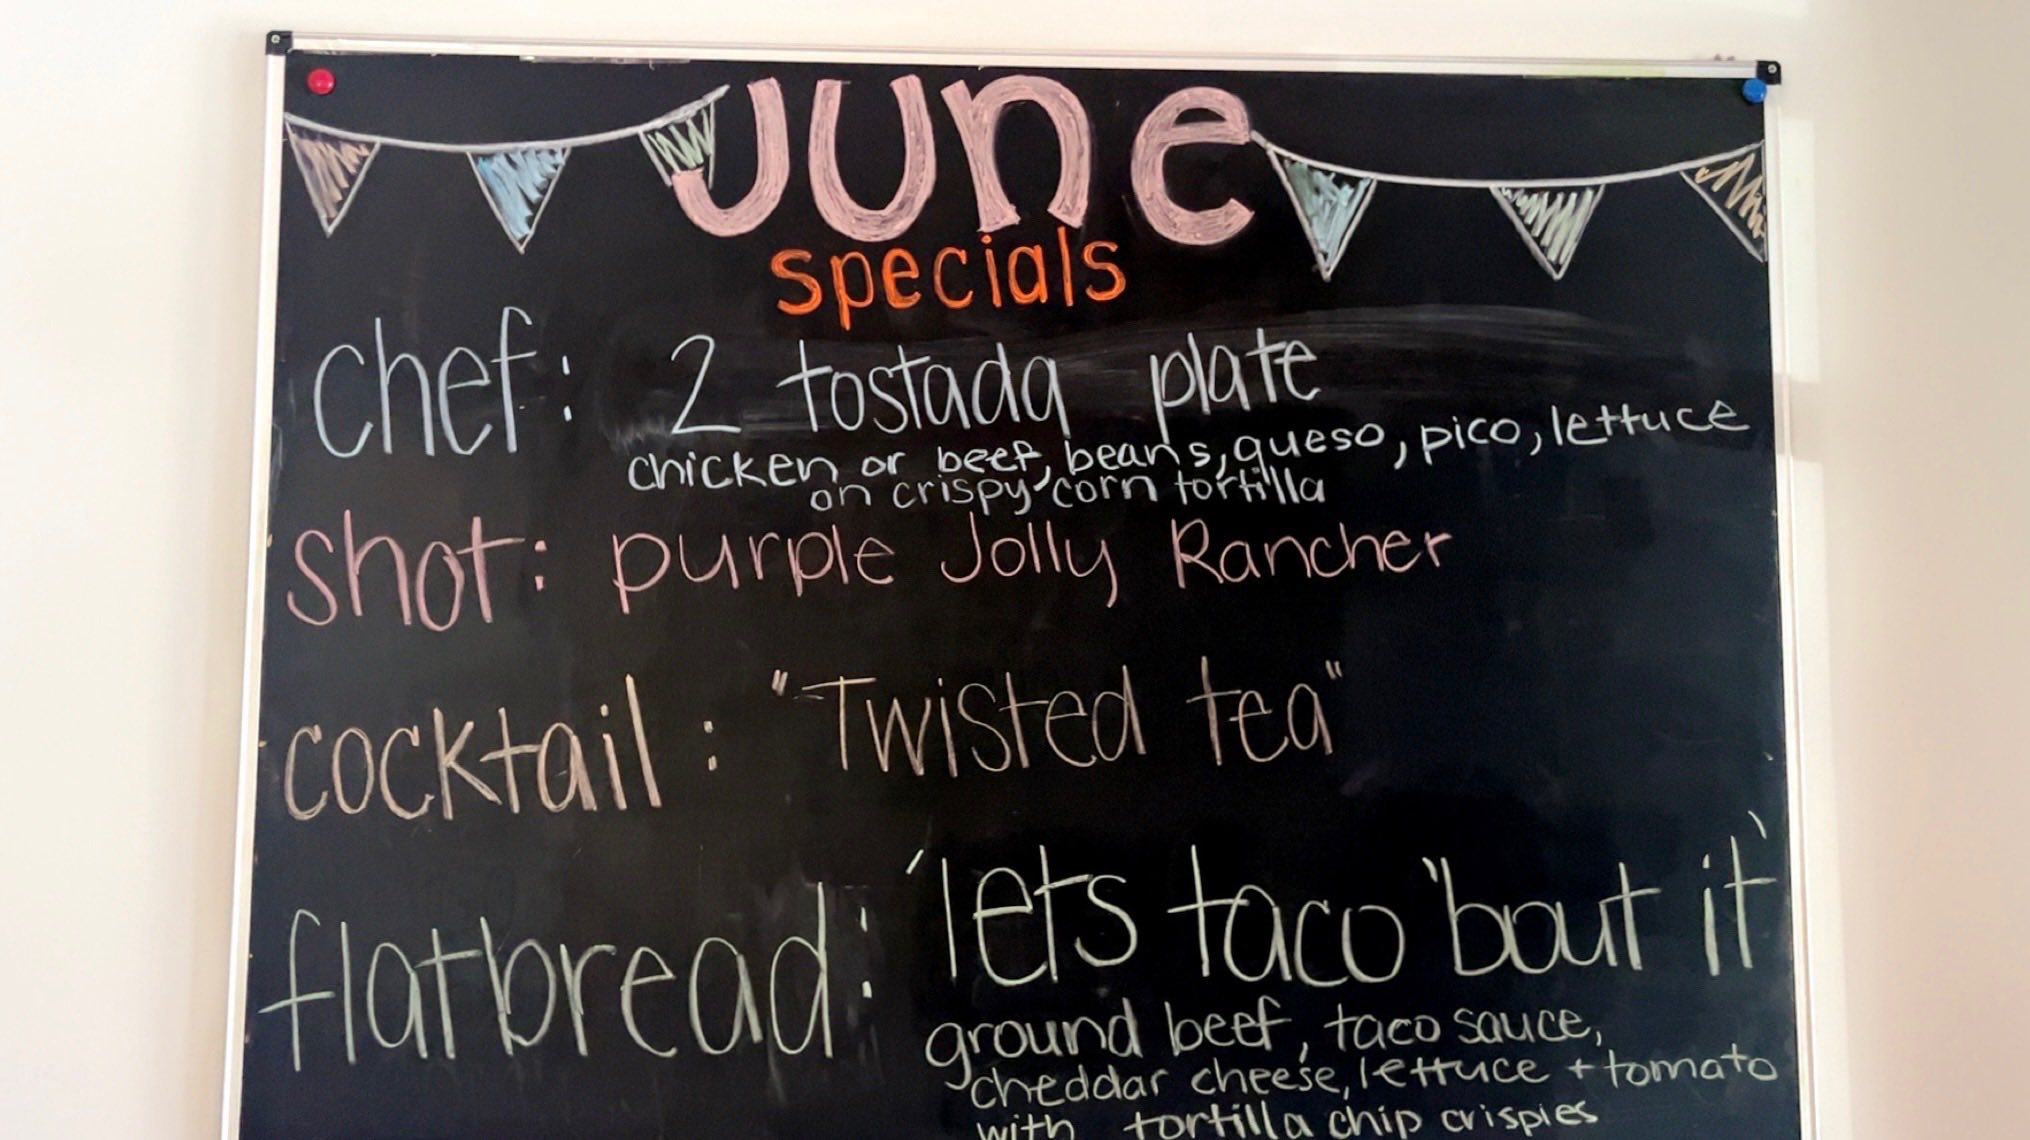 June
specials
chef: 2 tostada plate
chicken or beef, beans, queso, pico, lettuce
on crispy corn tortilla
shot: purple Jolly Rancher
cocktail: "Twisted tea"
flatbread: 'lets taco 'bout it'
ground beef, taco sauce,
cheddar cheese, lettuce + tomato
with tortilla chip crispies